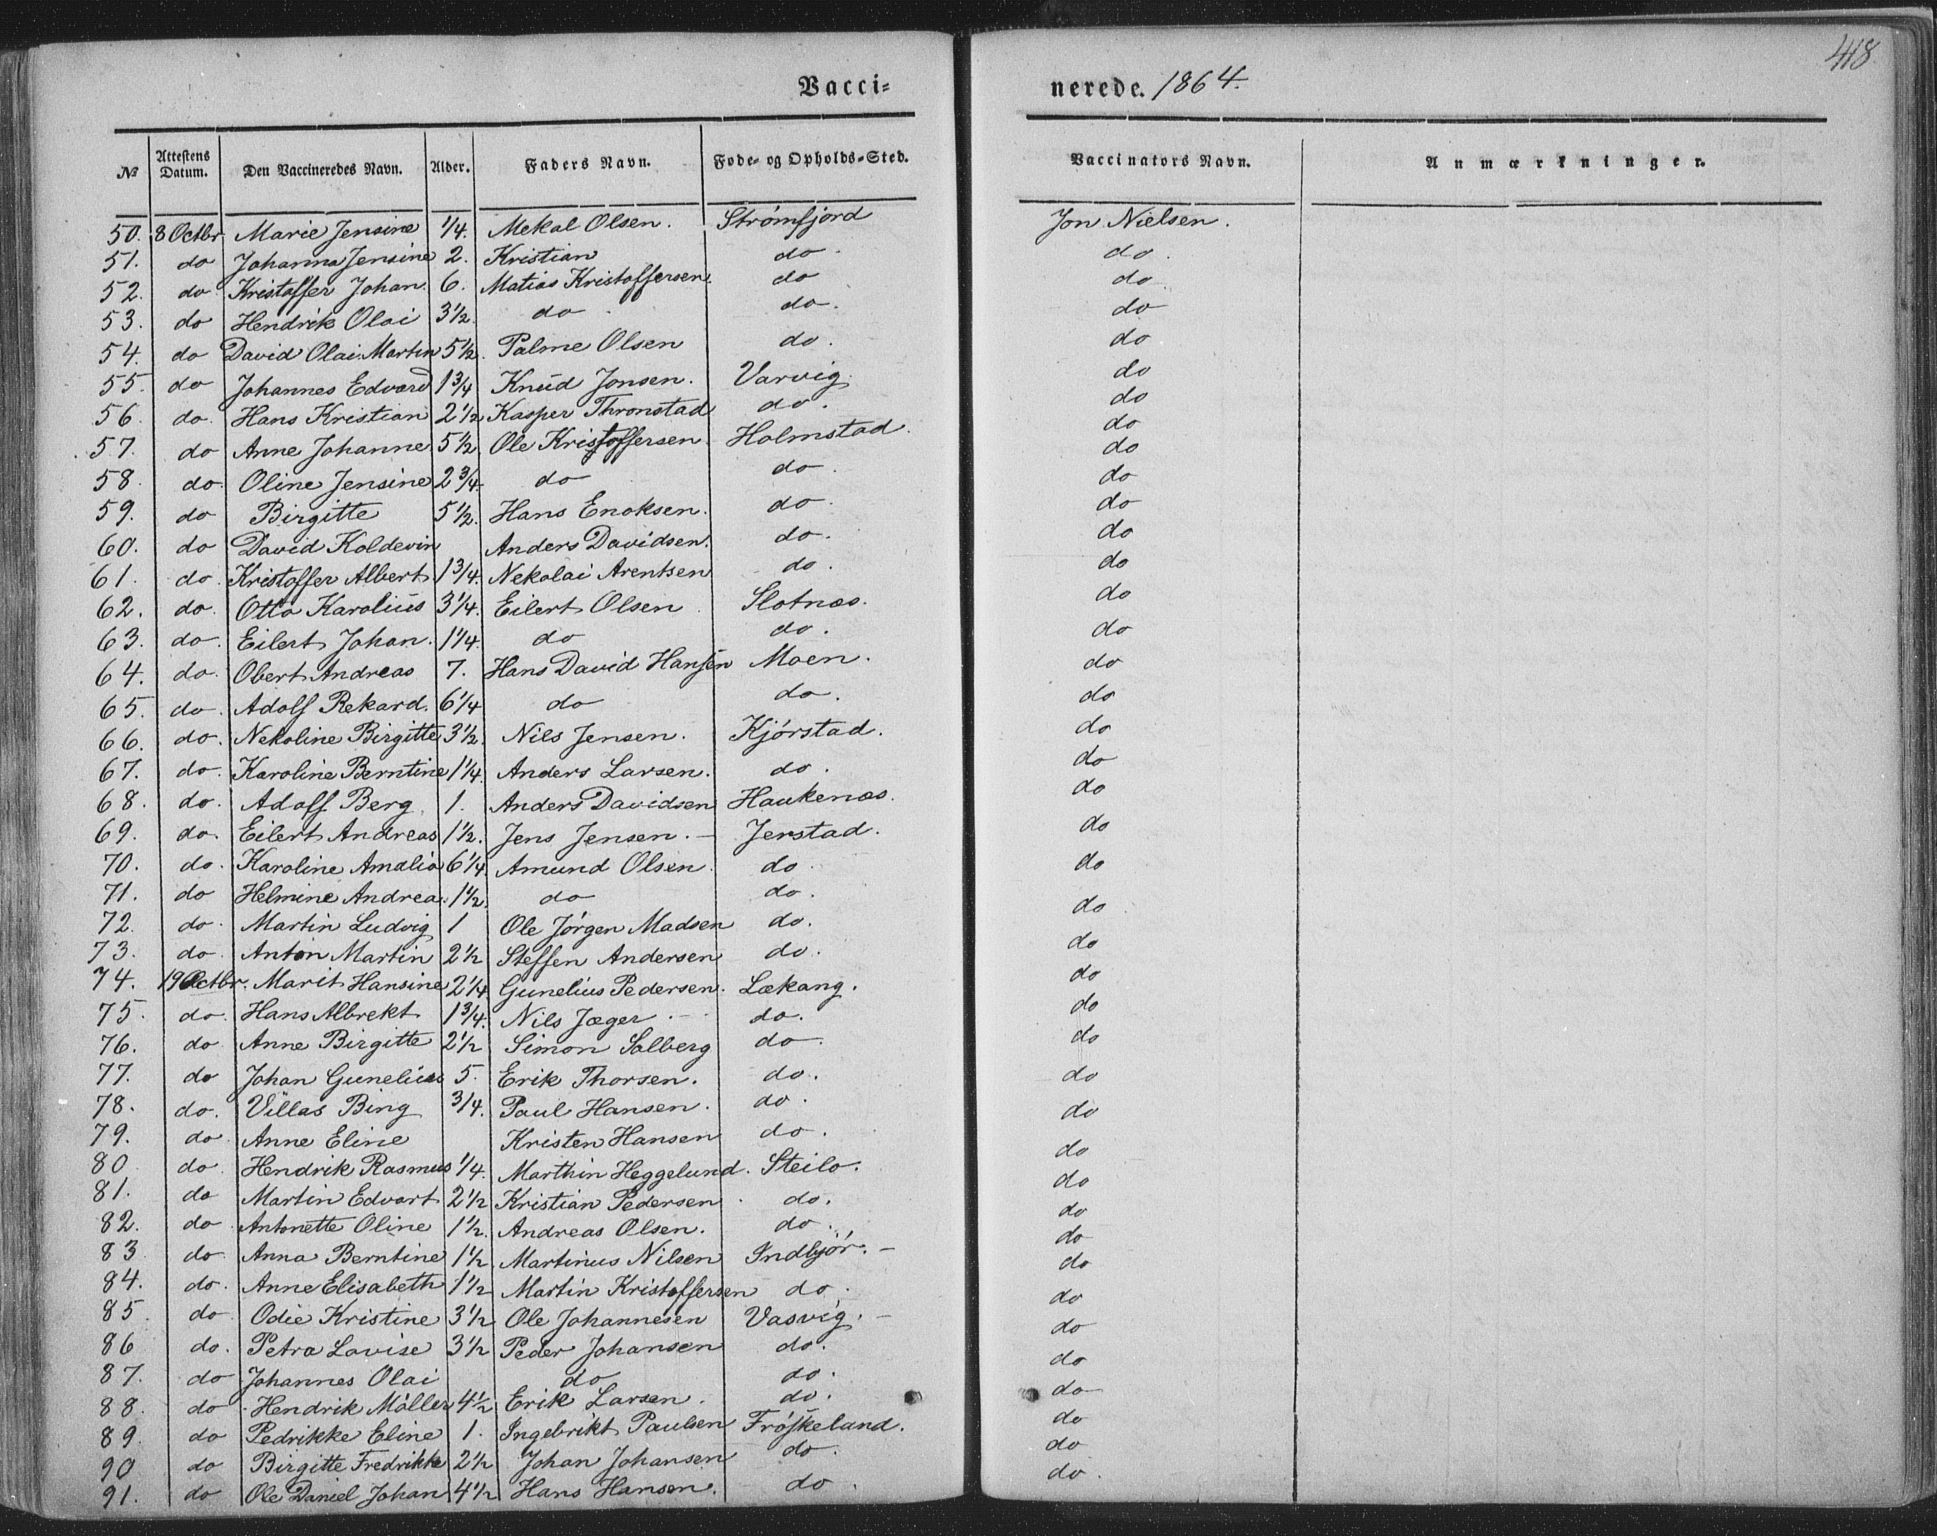 418
Vacci= nerede. 1864.
No Attestens Datum. Den Vaccineredes Navn. Alder. Faders Navn. Føde- og Opholds-Sted. Vaccinators Navn. Anmærkninger.
50. 8 Octbr Marie Jensine 1/4. Mekal Olsen. Strømfjord Jon Nielsen.
51. do Johanna Jensine 2. Kristian do. do.
52. do Kristoffer Johan. 6. Matias Kristoffersen. do do
53. do Hendrik Olai 3 1/2. do do. do
54. do David Olai Martin 5 1/2. Palme Olsen do. do
55. do Johannes Edvard 1 3/4 Knud Jonsen. Varvig. do
56. do. Hans Kristian 2 1/2 Kasper Thronstad do. do
57. do Anne Johanne 5 1/2 Ole Kristoffersen Holmstad. do
58. do. Oline Jensine 2 3/4. do do. do
59. do Birgitte 5 1/2. Hans Enoksen. do do
60. do David Koldevin Anders Davidsen. do. do
61. do. Kristoffer Albert 1 3/4. Nekolai Arentsen do. do
62. do. Otto Karolius 3 1/4. Eilert Olsen Slotnæs. do
63. do. Eilert Johan. 1 1/4. do do. do
64. do. Obert Andreas 7. Hans David Hansen Moen. do
65. do. Adolf Rekard. 6 1/4 do do. do
66. do. Nekoline Birgitte 3 1/2. Nils Jensen. Kjørstad. do
67. do. Karoline Berntine 1 1/4. Anders Larsen. do. do
68. do. Adolf Berg 1. Anders Davidsen Haukenæs. do
69. do. Eilert Andreas 1 1/2. Jens Jensen. - Jerstad. do
70. do. Karoline Amalia 6 1/4 Amund Olsen. do do
71. do Helmine Andrea. 1 1/2. do do. do
72. do. Martin Ludvig 1 Ole Jørgen Madsen do. do
73. do. Anton Martin 2 1/2 Steffen Andersen do. do
74. 19 Octbr. Marit Hansine 2 1/4 Gunelius Pedersen. Lækang. do
75. do. Hans Albrekt 1 3/4. Nils Jæger do. do
76. do Anne Birgitte 2 1/2 Simon Solberg do. do
77. do Johan Gunelius 5. Erik Thorsen. do. do
78. do. Villas Bing 3/4. Paul Hansen. do. do
79. do Anne Eline Kristen Hansen do. do
80 do. Hendrik Rasmus 1/4. Marthin Heggelund. Steilo. do
81. do Martin Edvart 2 1/2 Kristian Pedersen do. do
82. do Antonette Oline 1 1/2. Andreas Olsen. do. do
83 do. Anna Berntine 1 1/2 Martinus Nilsen Indbjør. - do
84. do. Anne Elisabeth 1 1/2 Martin Kristoffersen do. do
85. do Odie Kristine 3 1/2 Ole Johannesen Vasvig. - do
86 do. Petra Lovise 3 1/2 Peder Johansen do. do
87. do Johannes Olai do do. do
88. do Hendrik Møller 4 1/2 Erik Larsen. do. do
89. do Pedrikke Eline 1. Ingebrikt Paulsen Frøskeland. do
90 do Birgitte Fredrikke 2 1/2 Johan Johansen do. do
91. do Ole Daniel Johan 4 1/2 Hans Hansen. do. do.